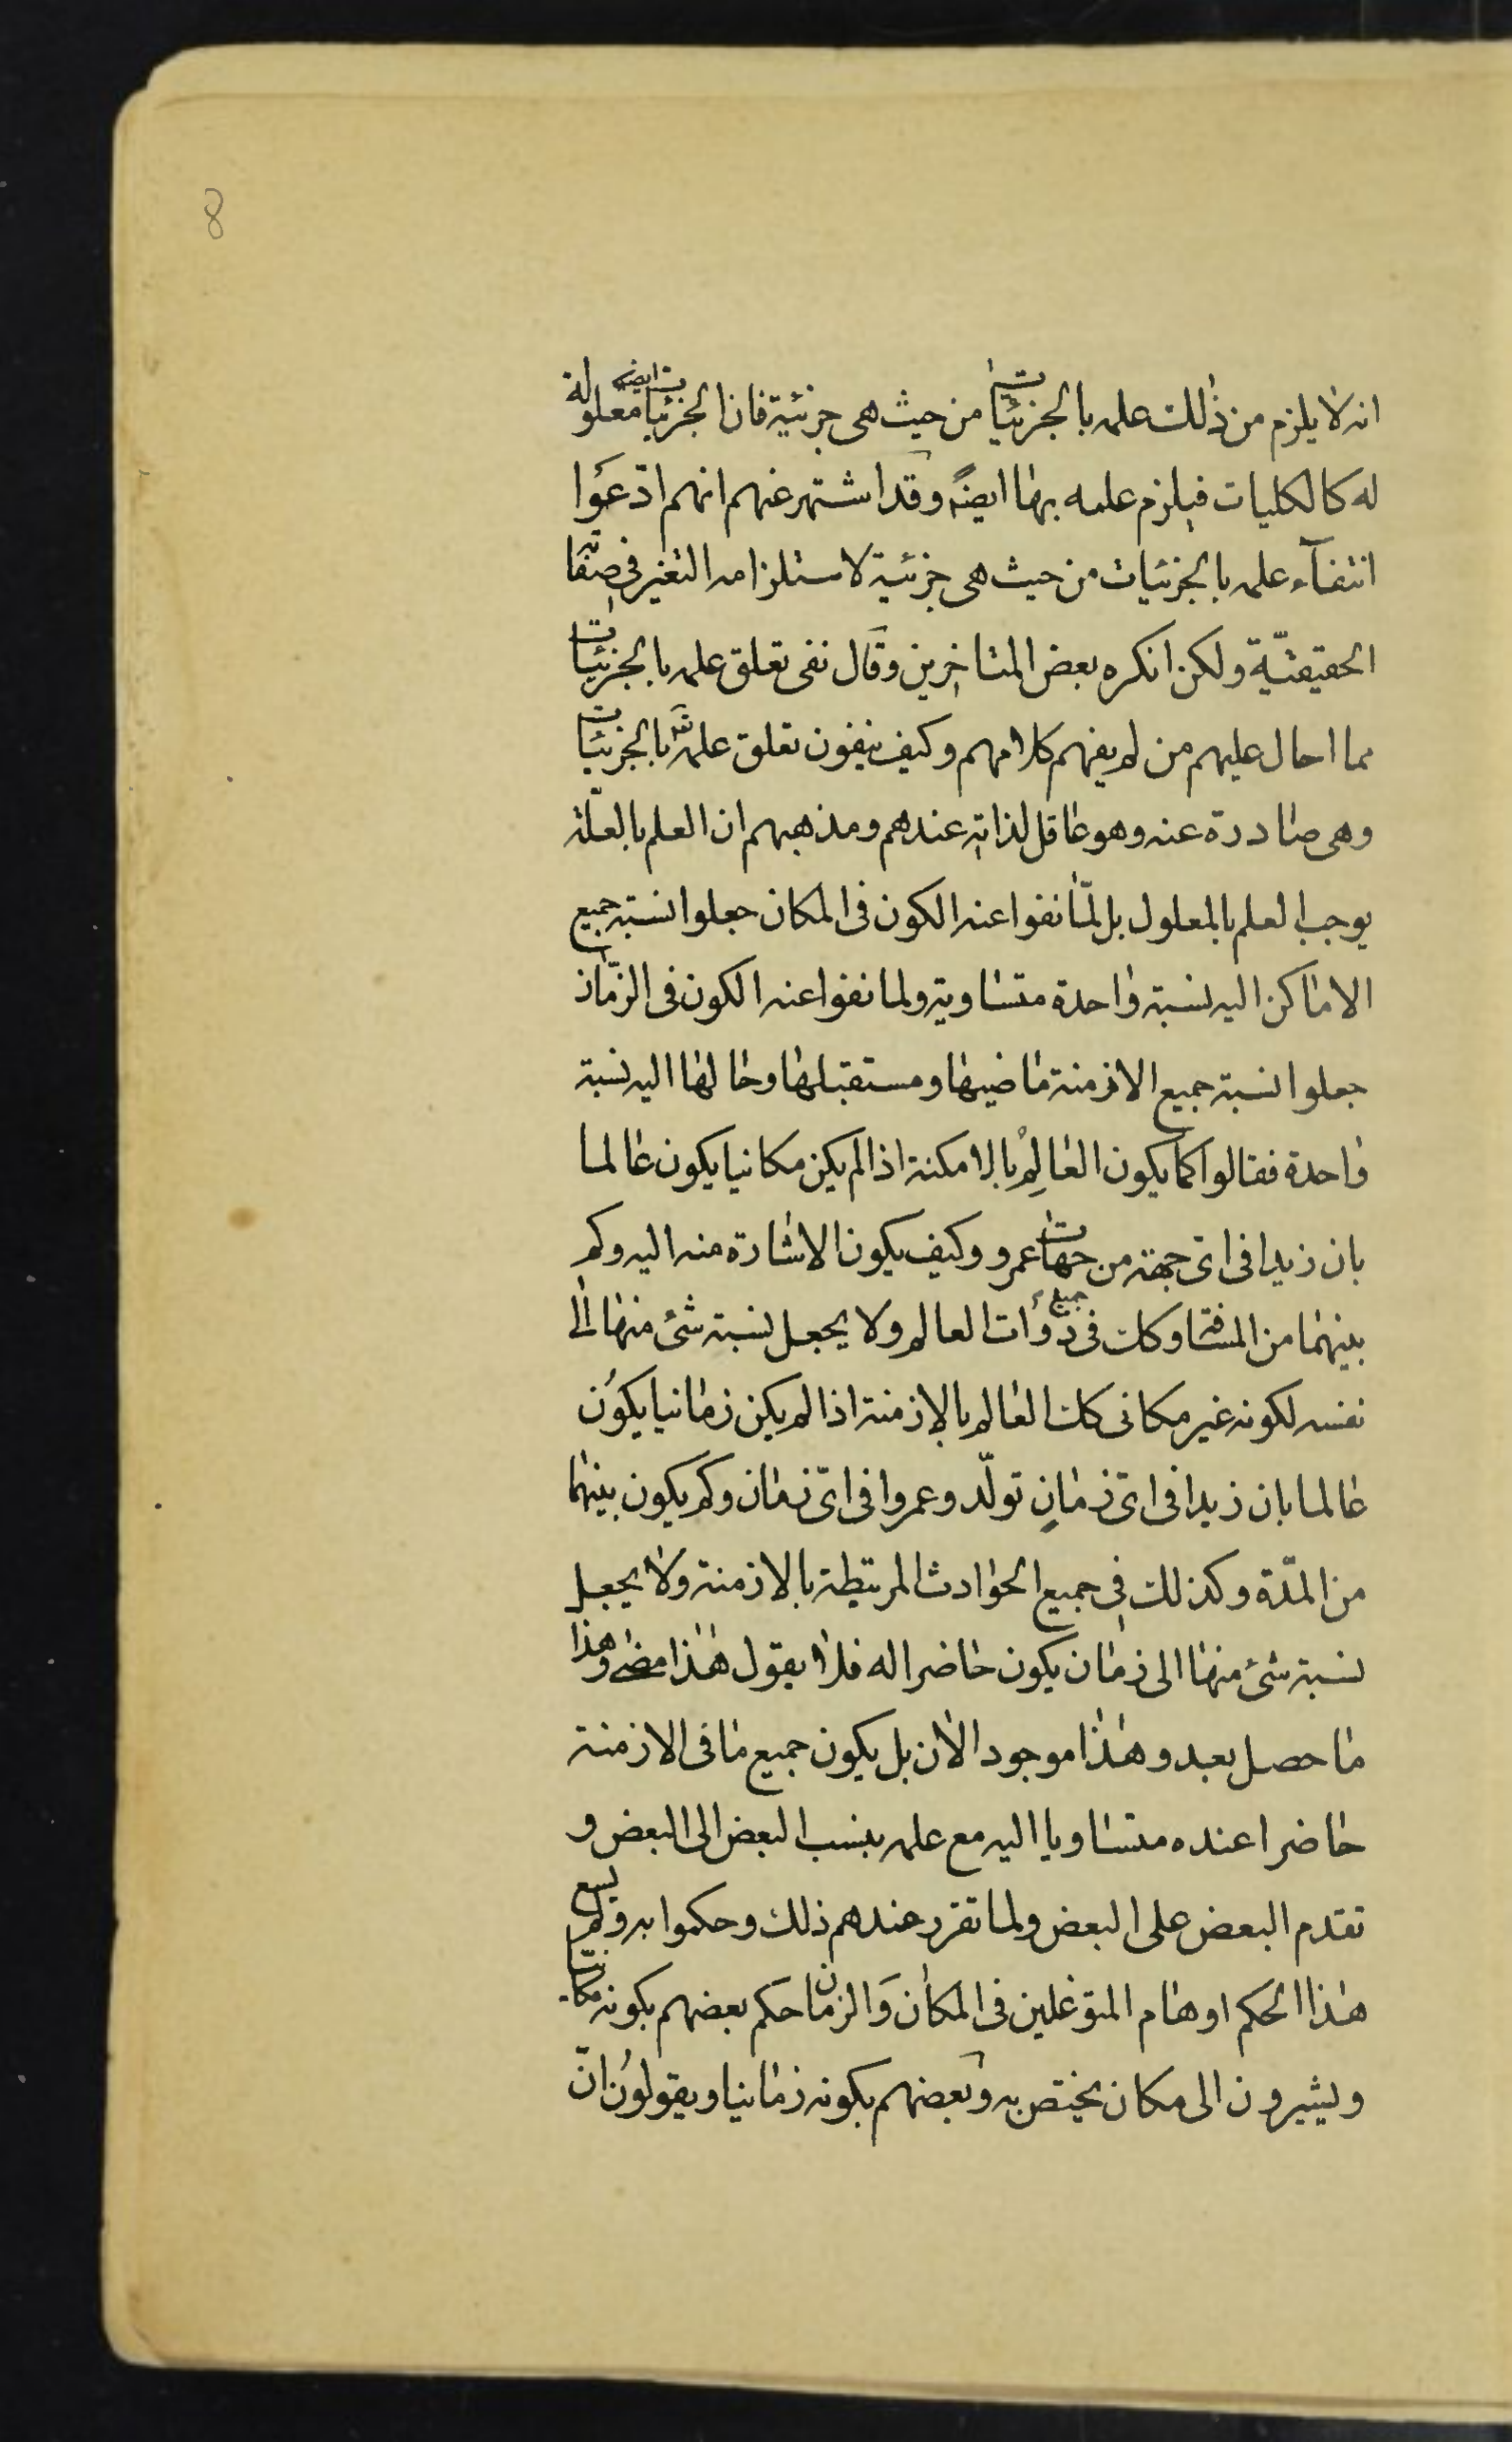 8
انه لا يلزم من ذلك علمه بالجزئيات من حيث هى جزئية فان الجزئيات ايضه معلولة
له كالكليات فيلزم علمه بها ايضًا وقد اشتهر عنهم انهم ادّعوا
انتفآء علمه بالجزئيات من حيث هى جزئية لاستلزامه التغير فى صفاته
الحقيقيّة ولكن انكره بعض المتاخرين وقال نفى تعلق علمه بالجزئيات
مما احال عليهم من لم يفهم كلامهم وكيف ينفون تعلق علمه تع بالجزئيات
وهى صادرة عنه وهو عاقل لذاته عندهم ومذهبهم ان العلم بالعلّة
يوجب العلم بالمعلول بل لمّا نفوا عنه الكون فى المكان جعلوا نسبة جميع
الاماكن اليه نسبة واحدة متساوية ولما نفوا عنه الكون فى الزمّان
جعلوا نسبة جميع الازمنة ماضيها ومستقبلها وحالها اليه نسبة
واحدة فقالوا كما يكون العالِم بالامكنة اذا لم يكن مكانيا يكون عالما
بان زيدا فى اىّ جهة من جهات عمرو وكيف يكون الاشارة منه اليه وكم
بينهما من المسافة وكك فى جميع ذوات العالم ولا يجعل نسبة شئ منها الى
نفسه لكونه غير مكانى كك العالم بالازمنة اذا لم يكن زمانيا يكون
عالما بان زيدا فى اىّ زمانٍ تولّد وعمروا فى اىّ زمان وكم يكون بينهما
من المدّة وكذلك فى جميع الحوادث المرتبطة بالازمنة ولا يجعل
نسبة شئ منها الى زمان يكون حاضرا له فلا يقول هذا مضى وهذا
ما حصل بعد وهذا موجود الان بل يكون جميع ما فى الازمنة
حاضرا عنده متساويا اليه مع علمه بنسب البعض الى البعض و
تقدم البعض على البعض ولما تقرر عندهم ذلك وحكموا به ولم يسع
هذا الحكم اوهام المتوغلين فى المكان والزمان حكم بعضهم بكونه مكانيّا
ويشيرون الى مكان يختص به وبعضهم بكونه زمانيا ويقولون انّ